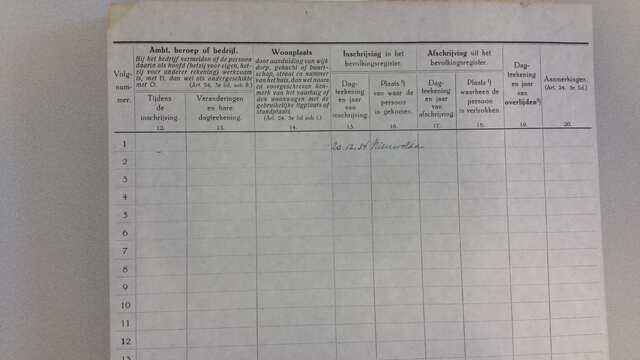 Ambt, beroep of bedrijf.
Bij het bedrijf vermelden of de persoon
daarin als hoofd (hetzij voor eigen, het-
zij voor anderer rekening) werkzaam
is, met H, dan wel als ondergeschikte
met O. (Art. 24, 3e lid, sub B.)
Woonplaats
door aanduiding van wijk
dorp, gehucht of buurt-
schap, straat en nummer
van het huis, dan wel naam
en voorgeschreven ken-
merk van het vaartuig of
den woonwagen met de
gebruikelijke ligplaats of
standplaats.
(Art. 24, 3e lid sub i.)
Inschrijving in het
bevolkingsregister.
Afschrijving uit het
bevolkingsregister.
Volg-
num-
mer.
Tijdens
de
inschrijving.
Veranderingen
en hare
dagteekening.
Dag-
teekening
en jaar
van
inschrijving.
Plaats
van waar de
persoon
is gekomen.
Dag-
teekening
en jaar
van
afschrijving.
Plaats
waarheen de
persoon
is vertrokken.
Dag-
teekening
en jaar
van
overlijden
Aanmerkingen.
(Art. 24, 3e lid.)
12. 13. 14. 15. 16. 17. 18. 19. 20.
1 20.12.34 Nieuwolda
2
3
4
5
6
7
8
9
10
11
12
13